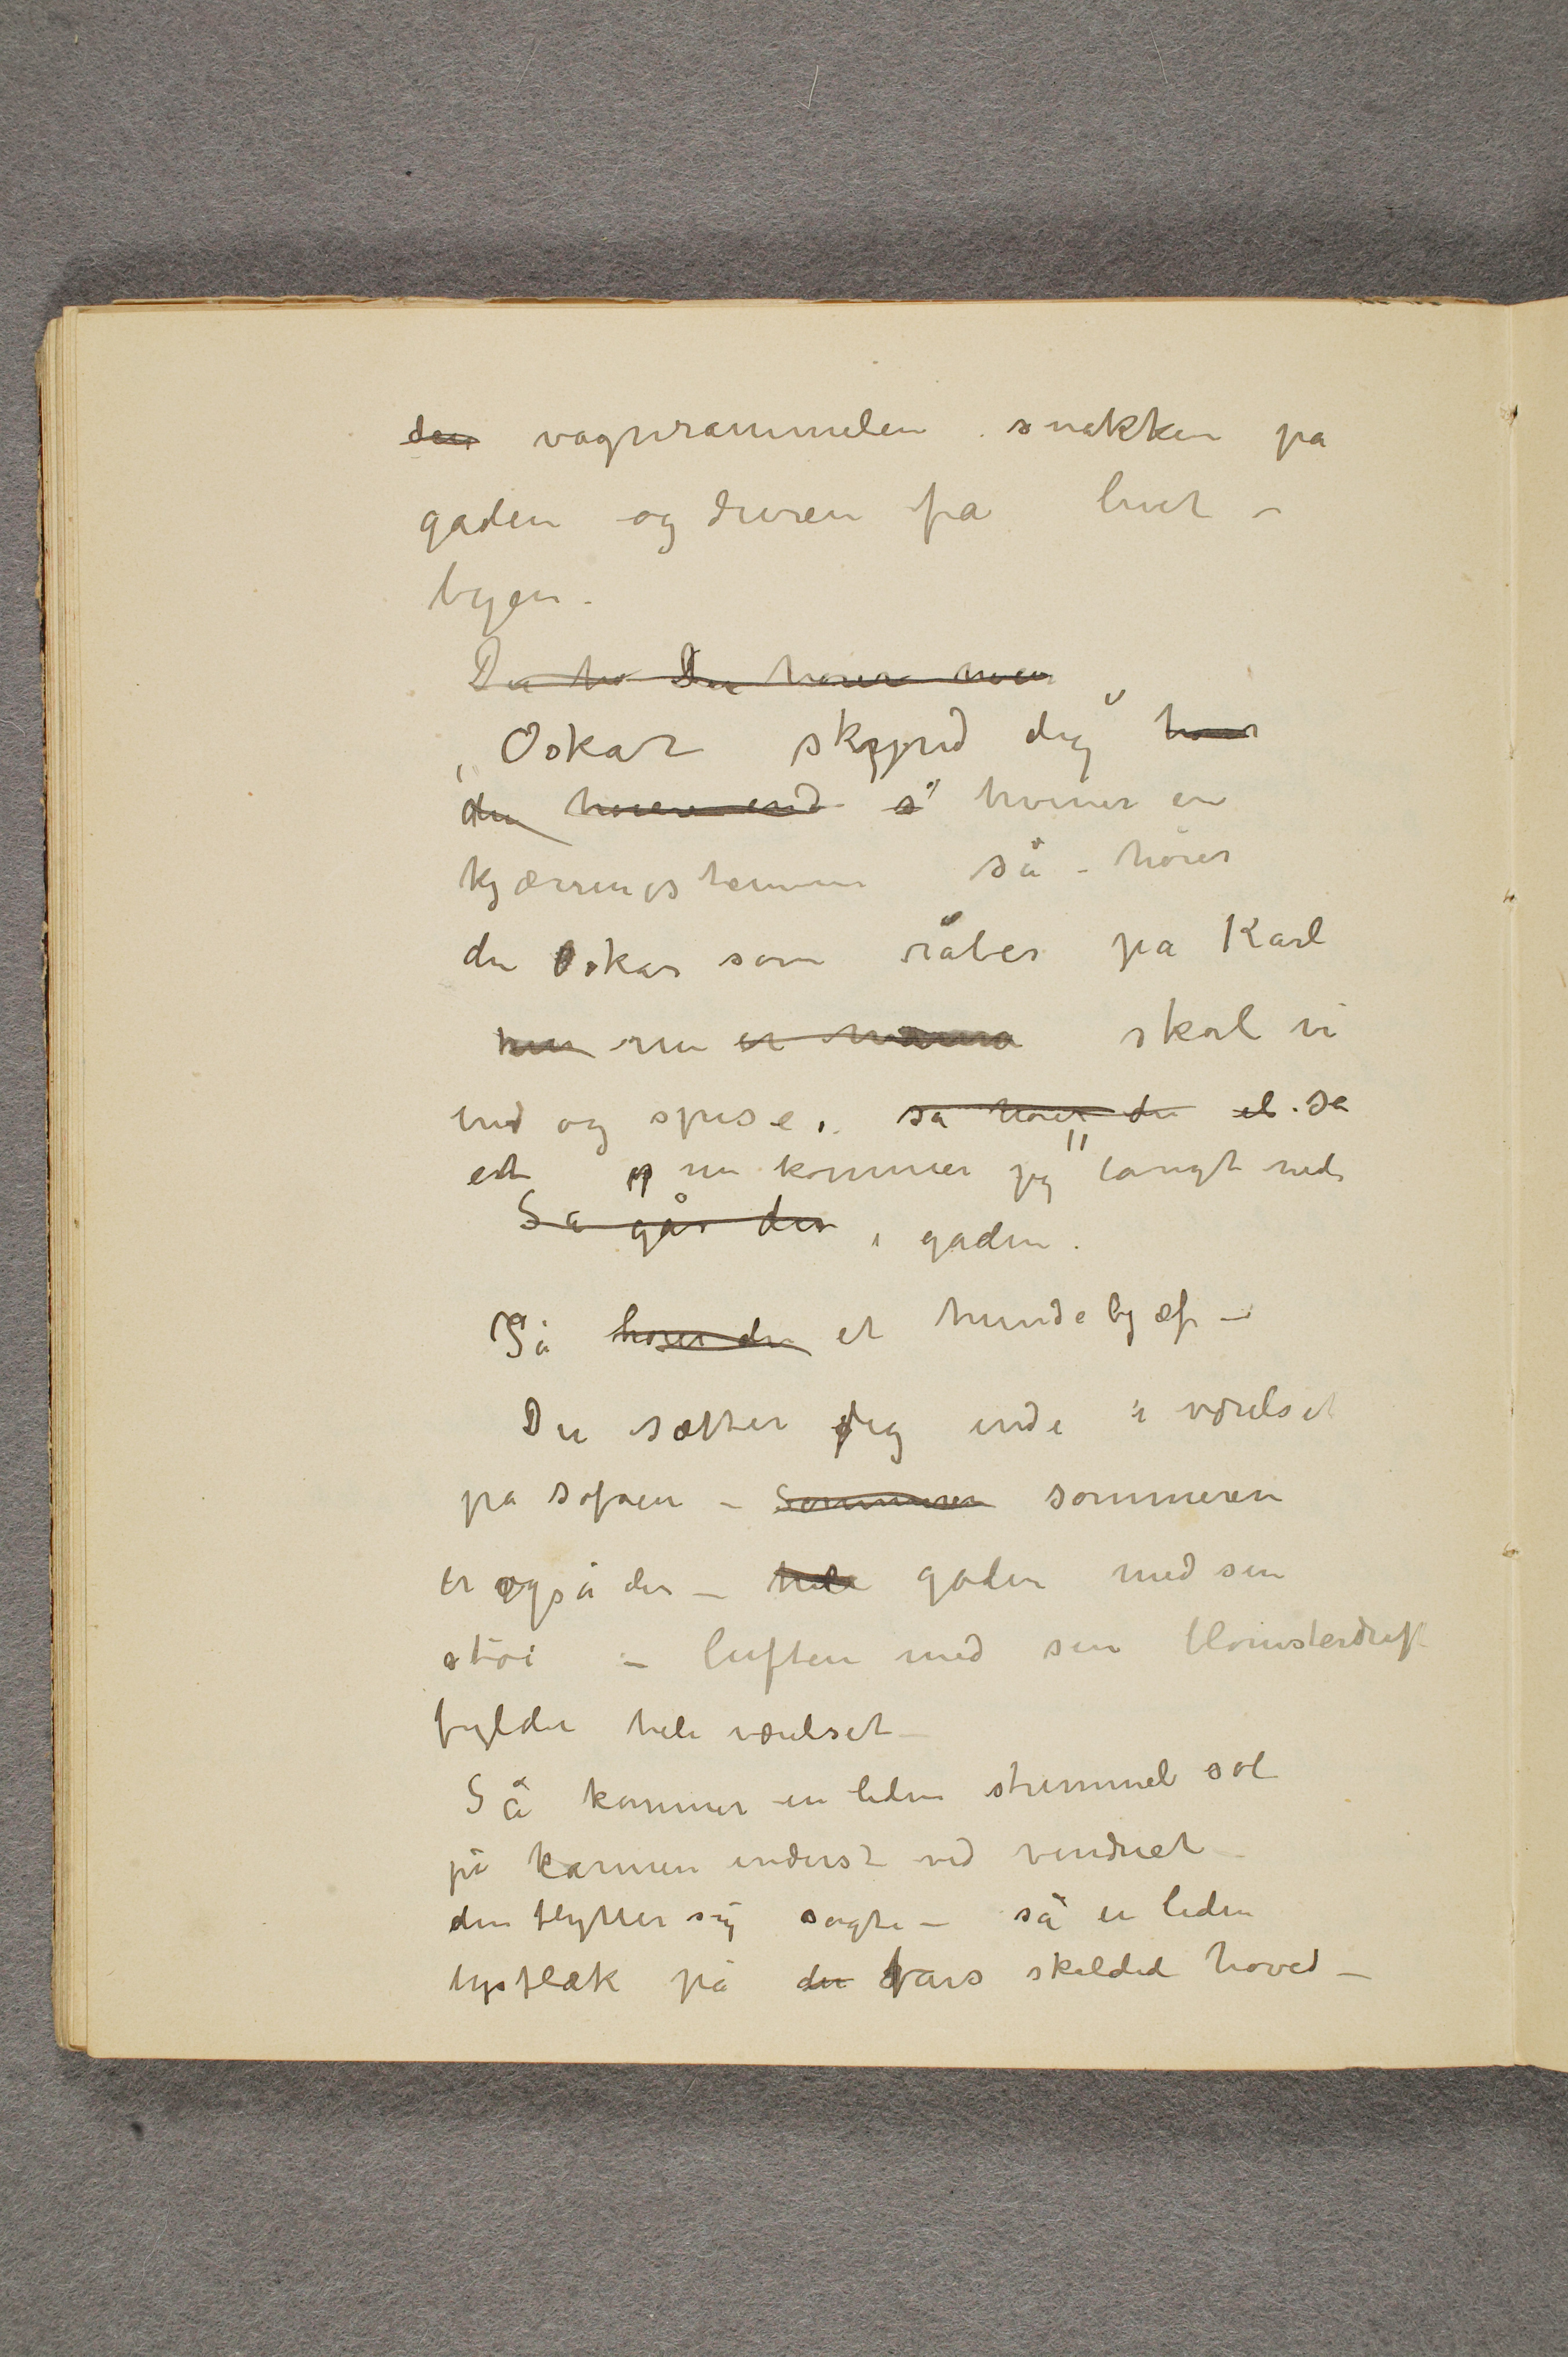 den vagnrammelen snakken på
gaden og duren fra hint –
byen.
Du hø Du hører men
„Oskar skynd dig“ hører
du hvinende s hviner en
kjærringstemme så – hører
du Oskar som råber på Karl
nu skal vi
ind og spise, så hører du et. så
et „nu kommer jeg“ langt nede
Så går du i gaden.
Så hører du et hundebjæf –
Du sætter dig inde i værelset
på sofaen – Sommeren sommeren
er også der – hele gaden med sin
støi – luften med sin blomsterduft
fylder hele værelset –
Så kommer en liden strimmel sol
på karmen inderst ved vinduet –
den flytter sig sagte – så en liden
lysflæk på du fars skaldede hoved –